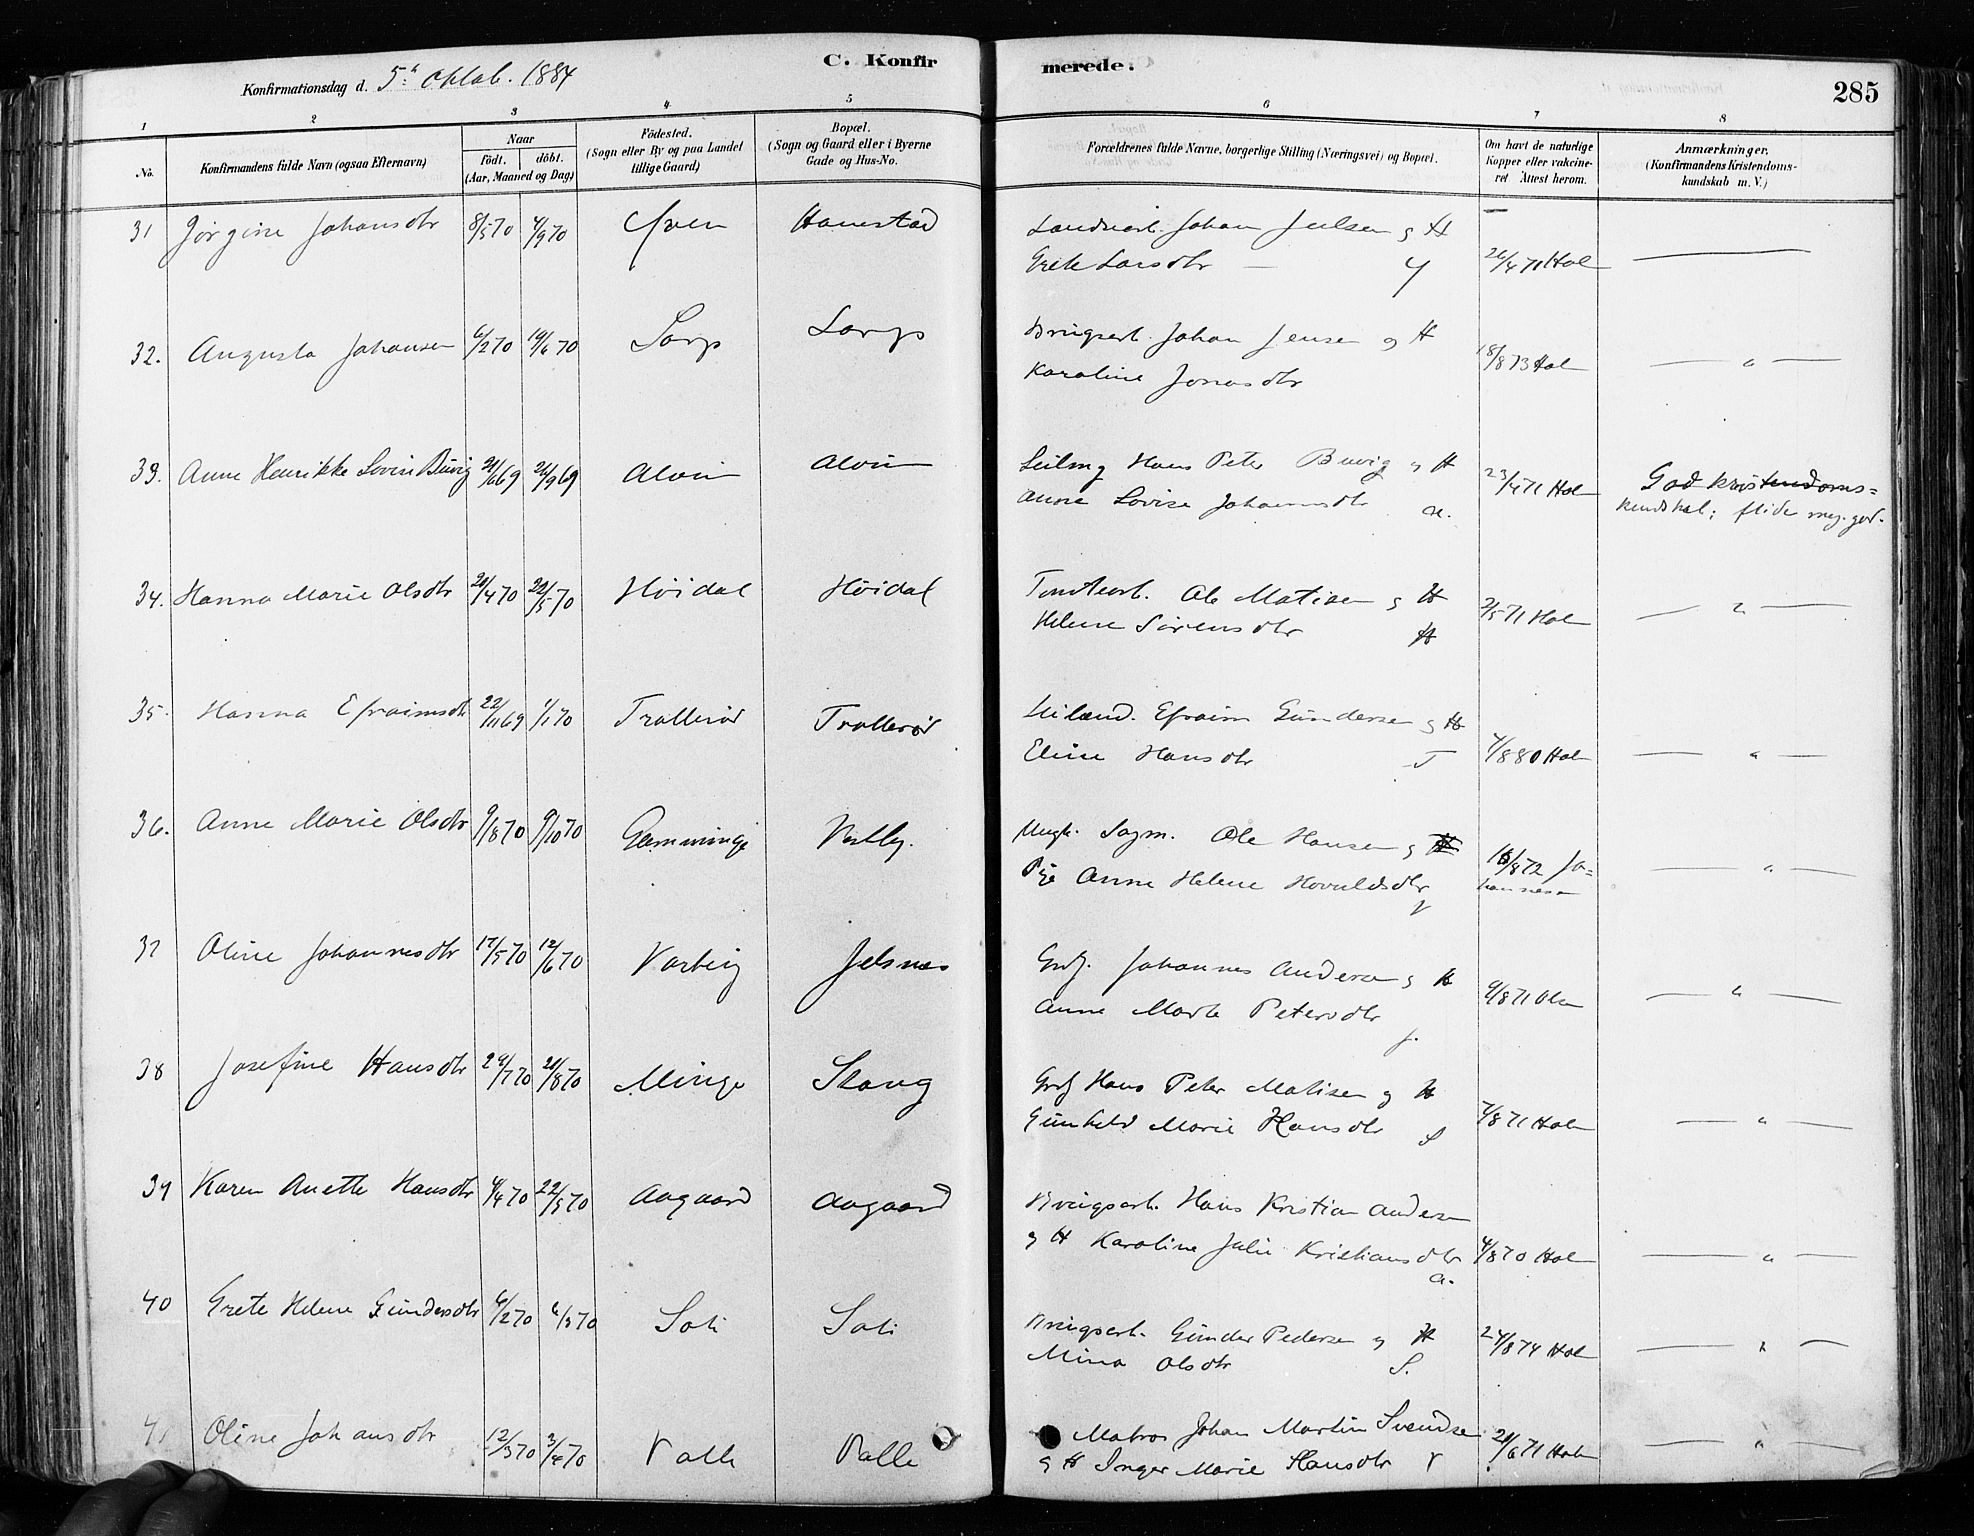 C. Konfirmerede.
285
Konfirmationsdag d. 5te Oktob. 1884
1 2 3 4 5 6 7 8
No.
Konfirmandens fulde Navn (ogsaa Efternavn)
Naar
Födt. döbt.
(Aar, Maaned og Dag)
Födested.
(Sogn eller By og paa Landet
tillige Gaard)
Bopæl.
(Sogn og Gaard eller i Byerne
Gade og Hus-No.
Forældrenes fulde Navne, borgerlige Stilling (Næringsvei) og Bopæl.
Om havt de naturlige
Kopper eller vakcine-
ret Attest herom.
Anmærkninger.
(Konfirmandens Kristendoms-
kundskab m. V.)
31 Jørgine Johansdtr 8/5 70 4/9 70 Yven Hanestad
Johan Juelsen og H
Grete Larsdtr — Y 26/4 71 Hol —
32. Augusta Johansen 6/2 70 19/6 70 Sorp Sorp
Brugsarb. Johan Jensen og H
Karoline Jonasdtr 18/8 73 Hol — " —
33. Anne Henrikke Lovise Buvig 21/6 69 26/9 69 Alvim Alvim
Hans Peter Buvig og H
Anne Lovise Johannesdtr A. 23/4 71 Hol God Kristendoms=
kundskab; flid meg. god.
34. Hanna Marie Olsdtr 20/4 70 22/5 70 Høidal Høidal
Tomtearb. Ole Matisen og H
Helene Sørensdtr H 2/5 71 Hol — " —
35. Hanna Efraimsdtr 22/11 69 1/1 70 Trollerød Trollerød
Leilænd. Efraim Gundersen og H
Eline Hansdtr T 7/8 80 Hol — " —
36. Anne Marie Olsdtr 9/8 70 9/10 70 Gamminge Valby.
Ungk. Sagm. Ole Hansen og
Pige Anne Helene Hovaldsdtr 16/8 72 Jo=
hannesen — " —
37 Oline Johannesdtr 17/5 70 12/6 70 Varteig Jelsnes
Grdj. Johannes Andersen og H
Anne Marte Petersdtr J. 9/8 71 Ols — " —
38 Josefine Hansdtr 29/7 70 21/8 70 Minge Skaug
Grdj Hans Peter Matisen og H
Gunhild Marie Hansdtr S 7/8 71 Hol — " —
39 Karen Anette Hansdtr 4/4 70 22/5 70 Aagaard Aagaard
Brugsarb. Hans Kristian Andersen
og H Karoline Julie Kristiansdtr A. 4/8 70 Hol — " —
40 Grete Helene Gundersdtr 6/2 70 6/3 70 Soli Soli
Brugsarb. Gunder Pedersen og H
Mina Olsdtr S. 24/8 74 Hol — " —
41 Oline Johansdtr 12/3 70 3/4 70 Valle Valle
Matros Johan Martin Svendsen
og H Inger Marie Hansdtr V 21/6 71 Hol — " —